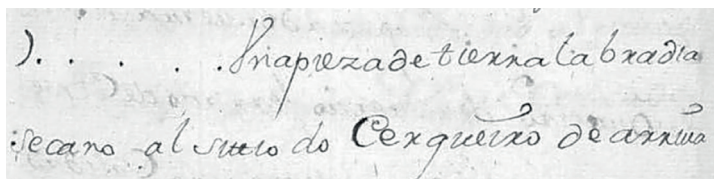 ). . . . . Vna pieza de tierra labradia
secano al sitio do Cerqueiro de arriua